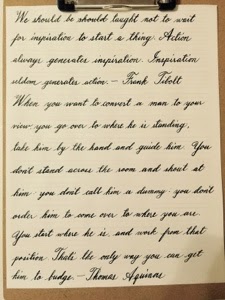 We should be should taught not to wait
for inspiration to start a thing. Action
always generates inspiration. Inspiration
seldom generates action. – Frank Tibolt
When you want to convert a man to your
view, you go over to where he is standing,
take him by the hand and guide him. You
don't stand across the room and shout at
him. you don't call him a dummy. you don't
order him to come over to where you are.
You start where he is, and work from that
position. Thats the only way you can get
him to budge. – Thomas Aquinas